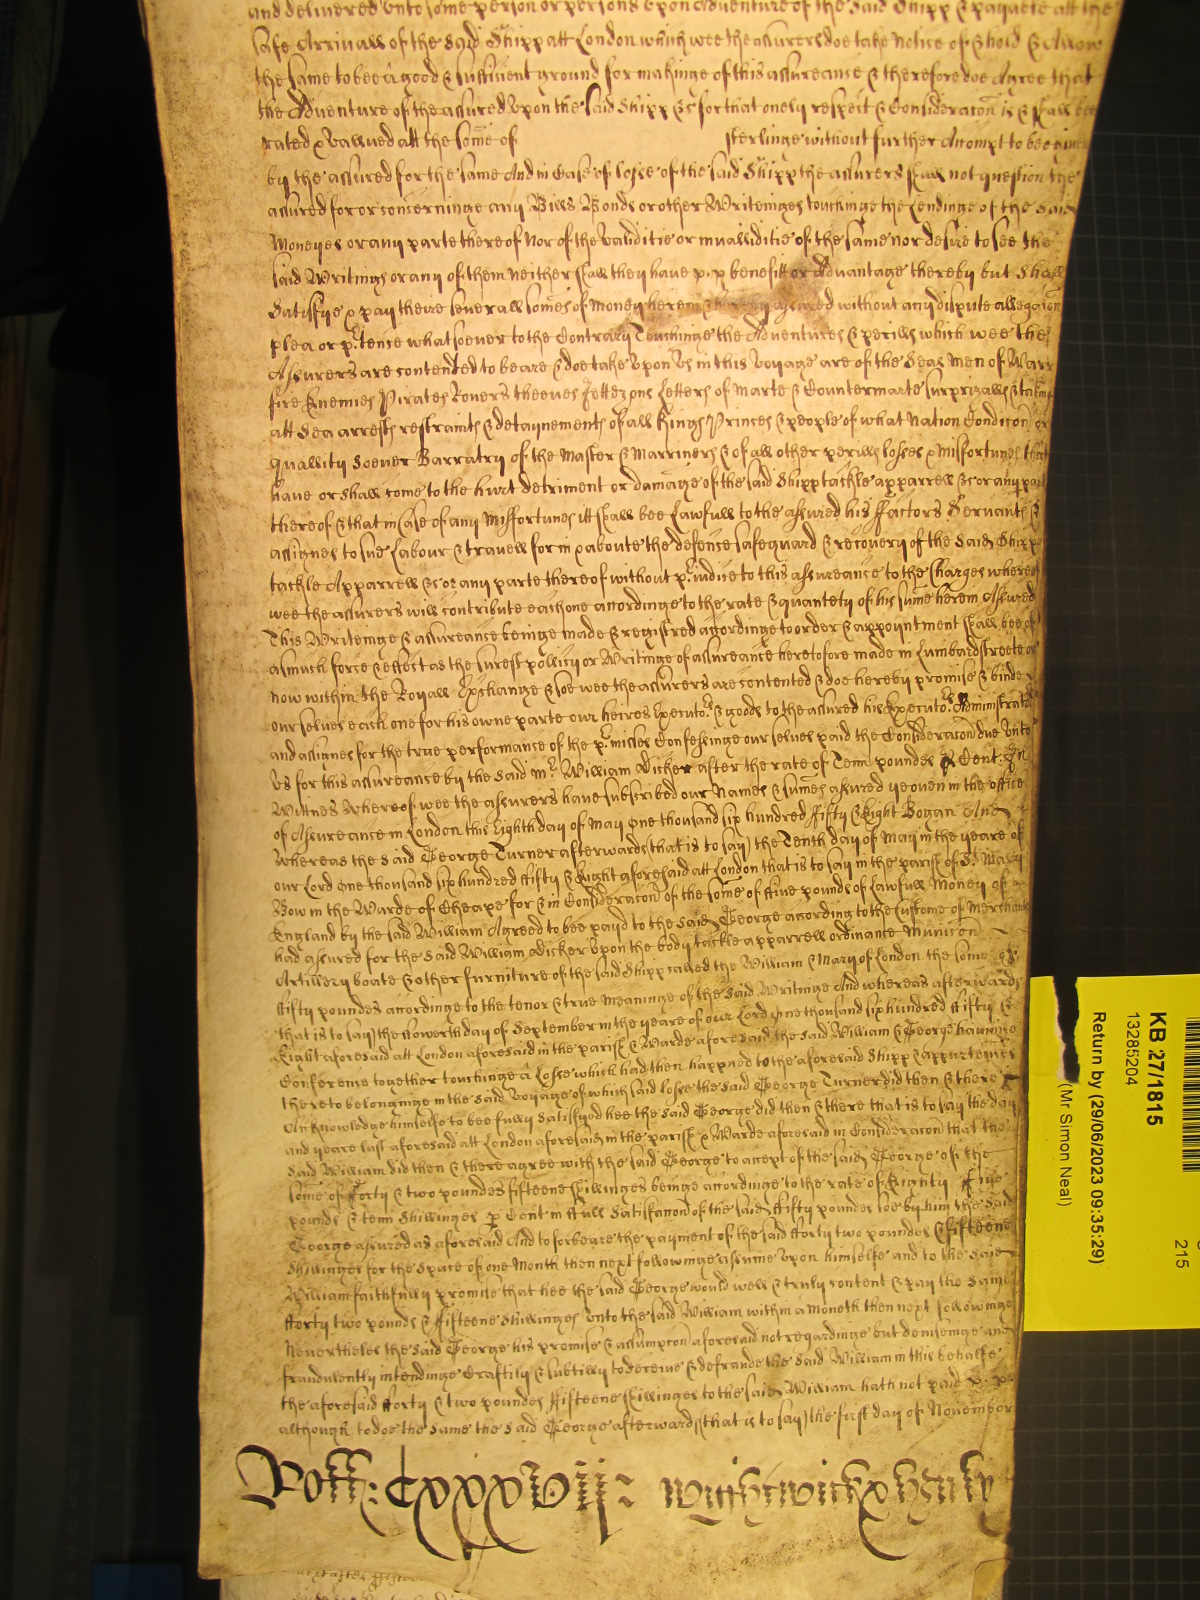 and delivered unto some person or persons upon Adventure of the said Shipp & payable att the
safe Arrivall of the said Shipp att London which wee the assurers doe take notice of & hold & Allow
the same to bee a good & sufficient ground for makinge of this assureance & therefore doe Agree that
the Adventure of the assured upon the said Shipp &c for that onely respect & Consideracon is & shall bee
rated & vallued att the some of sterlinge without further Attempt to bee given
by the assured for the same And in Case of losse of the said Shipp the assurers shall not question the
assured for or concerninge any Bills Bonds or other Writeinges touchinge the Lendinge of the said
Moneyes or any parte thereof Nor of the validitie or invalliditie of the same nor desire to see the
said Writings or any of them neither shall they have p. p benefitt or Advantage thereby but shall
Satisfye & pay theire severall somes of Money herein & hereby assured without any dispute allegacon
plea or p.tence whatsoever to the Contrary Touchinge the Adventures & perills which wee the
Assurers are contented to beare & doe take upon Us in this voyage are of the Seas Men of Warr
fire Enemies Pirates Rovers theeves Jettezons Letters of Marte & Countermarte surprizalls & takings
att Sea arrests restraints & detaynements of all Kings Princes & people of what Nation Condicon or
quallity soever Barratry of the Master & Marriners & of all other perills losses & Misfortunes that
have or shall come to the hurt detriment or damage of the said Shipp tackle apparrell &c or any part
thereof & that in Case of any Missfortunes itt shall bee Lawfull to the assured his ffactors Servants &
assignes to sue Labour & travell for in & aboute the defence safeguard & recovery of the said Shipp
tackle Apparrell &c or any parte thereof without p.iudice to this assureance to the Charges whereof
wee the assurers will contribute each one accordinge to the rate & quantety of his sume herein Assured
This Writeinge & assureance beinge made & registred accordinge to order & appoyntment shall bee of
asmuch force & effect as the surest pollicy or Writinge of assureance heretofore made in Lumbardstreete or
now within the Royall Exchange & soe wee the assurers are contented & doe hereby promise & binde
our selves each one for his owne parte our heires Executo.rs & goods to the assured his Executo.rs Administrato
and assignes for the true performance of the p.misses Confessinge our selves paid the Consideracon due unto
Us for this assureance by the said Mr. William Vicker after the rate of Tenn poundes p Cent. In
Wittnes Whereof wee the assurers have subscribed our Names & sumes assured yeoven in the office
of Assureance in London this Eighth day of May One thousand six hundred ffifty & Eight Bogan And
Whereas the said George Turner afterwards (that is to say) the Tenth day of May in the yeare of
our Lord One thousand six hundred ffifty & Eight aforesaid att London that is to say in the parish of St. Mary
Bow in the Warde of Cheape for & in Consideracon of the some of ffive pounds of Lawfull Money of
England by the said William Agreed to bee payd to the said George according to the Custome of Merchants
had assured for the said William Vicker upon the body tackle apparrell ordinance Municon
Artillery boate & other furniture of the said Shipp called the William & Mary of London the some of
ffifty poundes accordinge to the tenor & true meaninge of the said Writinge And whereas afterwards
(that is to say) the ffowerth day of September in the yeare of our Lord One thousand six hundred ffifty &
Eight aforesaid att London aforesaid in the parish & Warde aforesaid the said William & George haveinge
Conference together touchinge a Losse which had then happned to the aforesaid Shipp & appurtences
thereto belonginge in the said Voyage of which said losse the said George Turner did then & there
Acknowledge himselfe to bee fully satisfyed hee the said George did then & there that is to say the day
and yeare last aforesaid att London aforesaid in the parish & Warde aforesaid in Consideracon that the
said William did then & there agree with the said George to accept of the said George of the
some of fforty & two poundes fifteene shillinges beinge accordinge to the rate of Eighty ffive
pounds & tenn Shillinges p Cent in ffull satisfaccon of the said ffifty poundes soe by him the said
George assured as aforesaid And to forbeare the payment of the said fforty two poundes & fifteene
Shillinges for the space of one Month then next followinge assume upon himselfe and to the said
William faithfully promise that hee the said George would well & truly content & pay the same
fforty two pounds & ffifteene Shillinges unto the said William within a Moneth then next followinge
Nevertheles the said George his promise & assumpcon aforesaid not regardinge but deviseinge and
fraudulently intendinge Craftily & subtilly to deceive & defraude the said William in this behalfe
the aforesaid fforty & two poundes ffifteene shillinges to the said William hath not paid
although to doe the same the said George afterwards (that is to say) the first day of November
Rott: Cxxxviij:
KB 27/1815
13285204
Return by (29/06/2023 09:35:29)
(Mr Simon Neal)
215